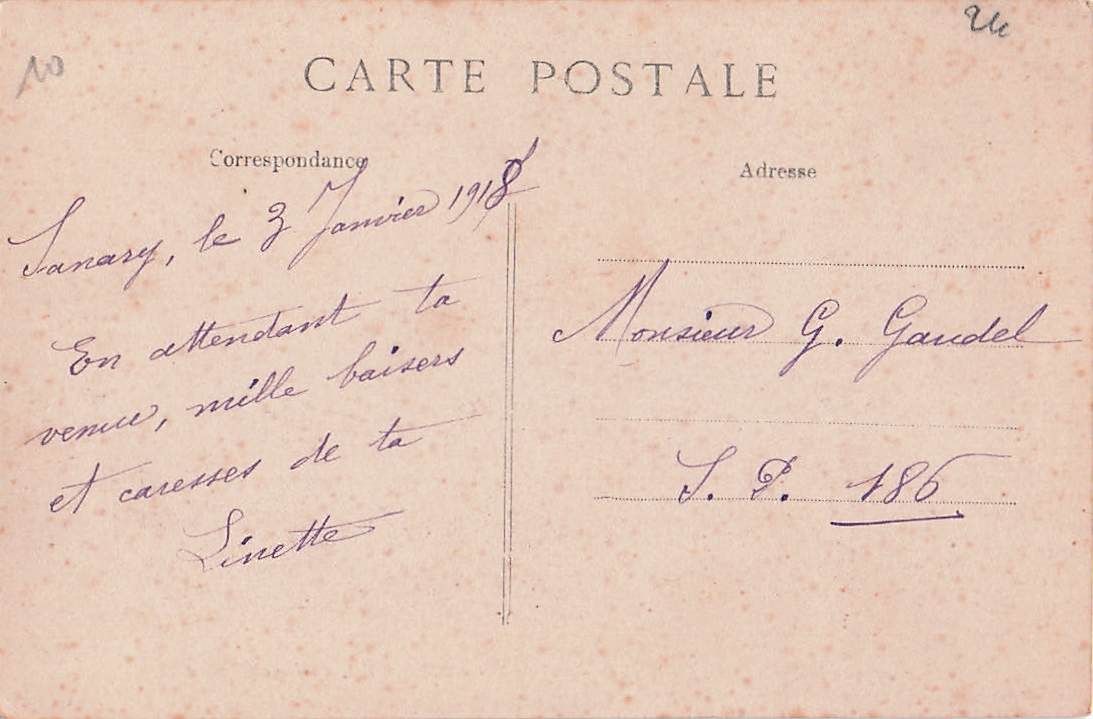 10
24
CARTE POSTALE
Correspondance
Adresse
Sanary, le 3 Janvier 1918
En attendant ta
venue, mille baisers
et caresses de ta
Linette
Monsieur G. Gaudel
S. P. 186